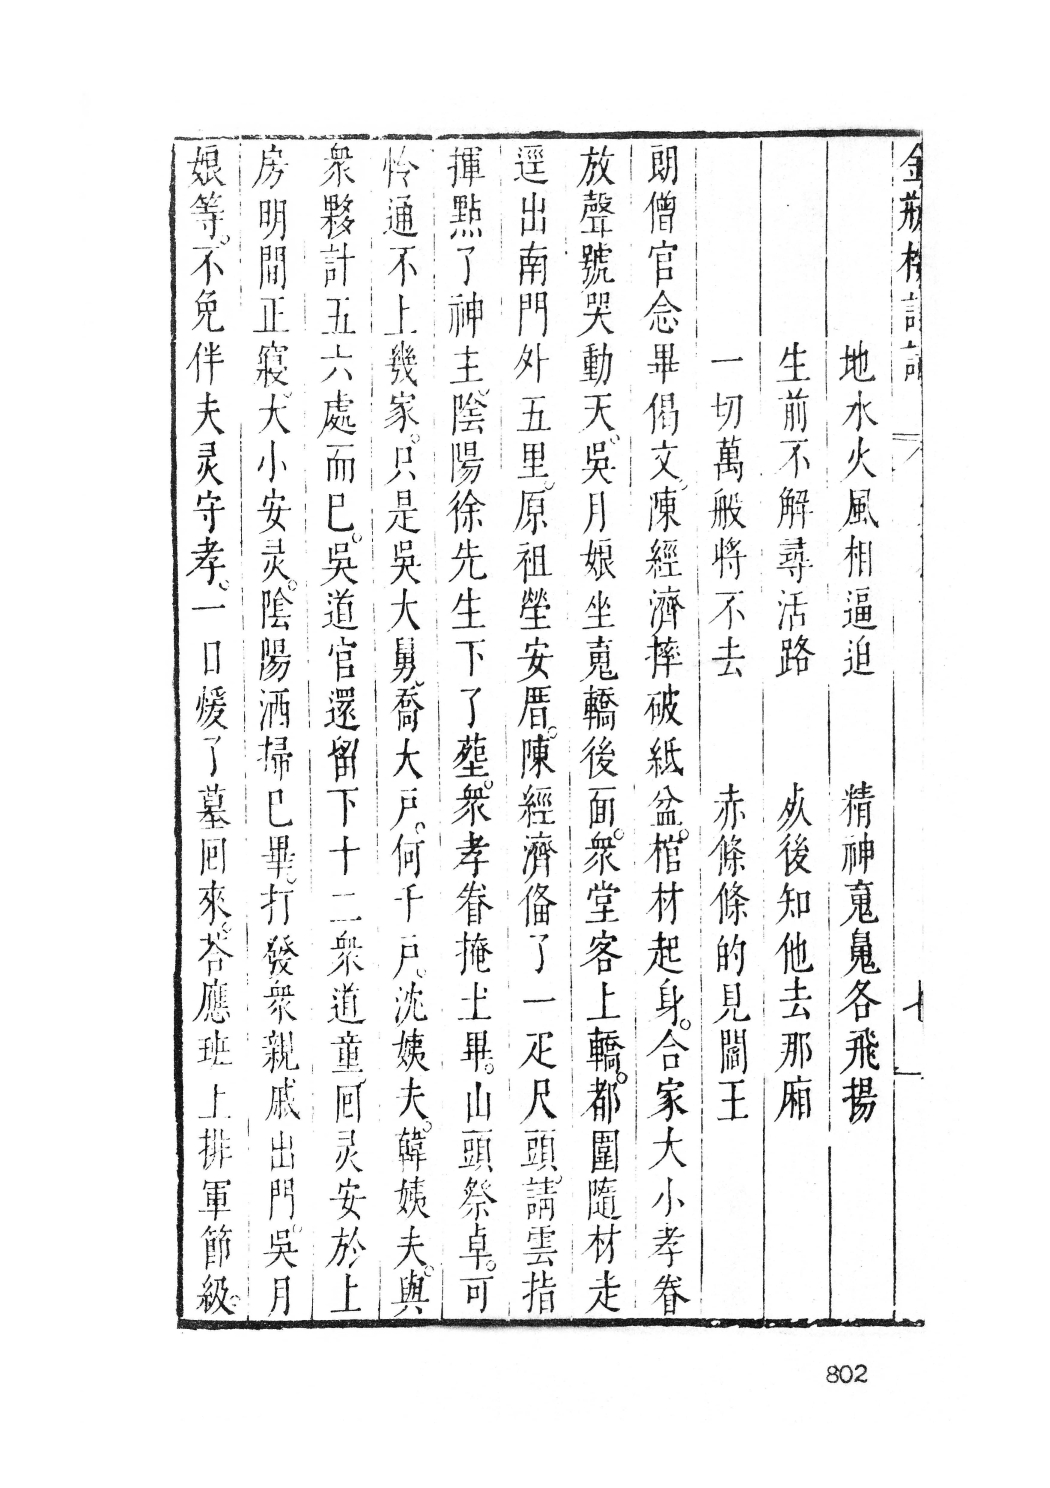 金瓶梅詞話
地水火風相逼迫　精神鬼鬼各飛揚
生前不解尋活路　死後知他去那廂
一切萬般將不去　赤條條的見閻王
朗僧官念畢偈文。陳經濟摔破紙盆。棺材起身。合家大小孝眷
放聲號哭動天。吳月娘坐䰟轎後面。衆堂客上轎。都圍隨材走
逕出南門外五里。原祖塋安厝。陳經濟俻了一疋尺頭。請雲指
揮點了神主。陰陽徐先生下了塟。衆孝眷掩土畢。山頭祭卓。可
怜通不上幾家。只是吳大舅。喬大户。何千户。沈姨夫。韓姨夫。與
衆夥計五六處而已。吳道官還留下十二衆道童。囘灵安於上
房明間正寢。大小安灵。陰陽洒掃已畢。打發衆親戚出門。吳月
娘等。不免伴夫灵守孝。一日煖了墓囘來。荅應班上排軍節級。
802